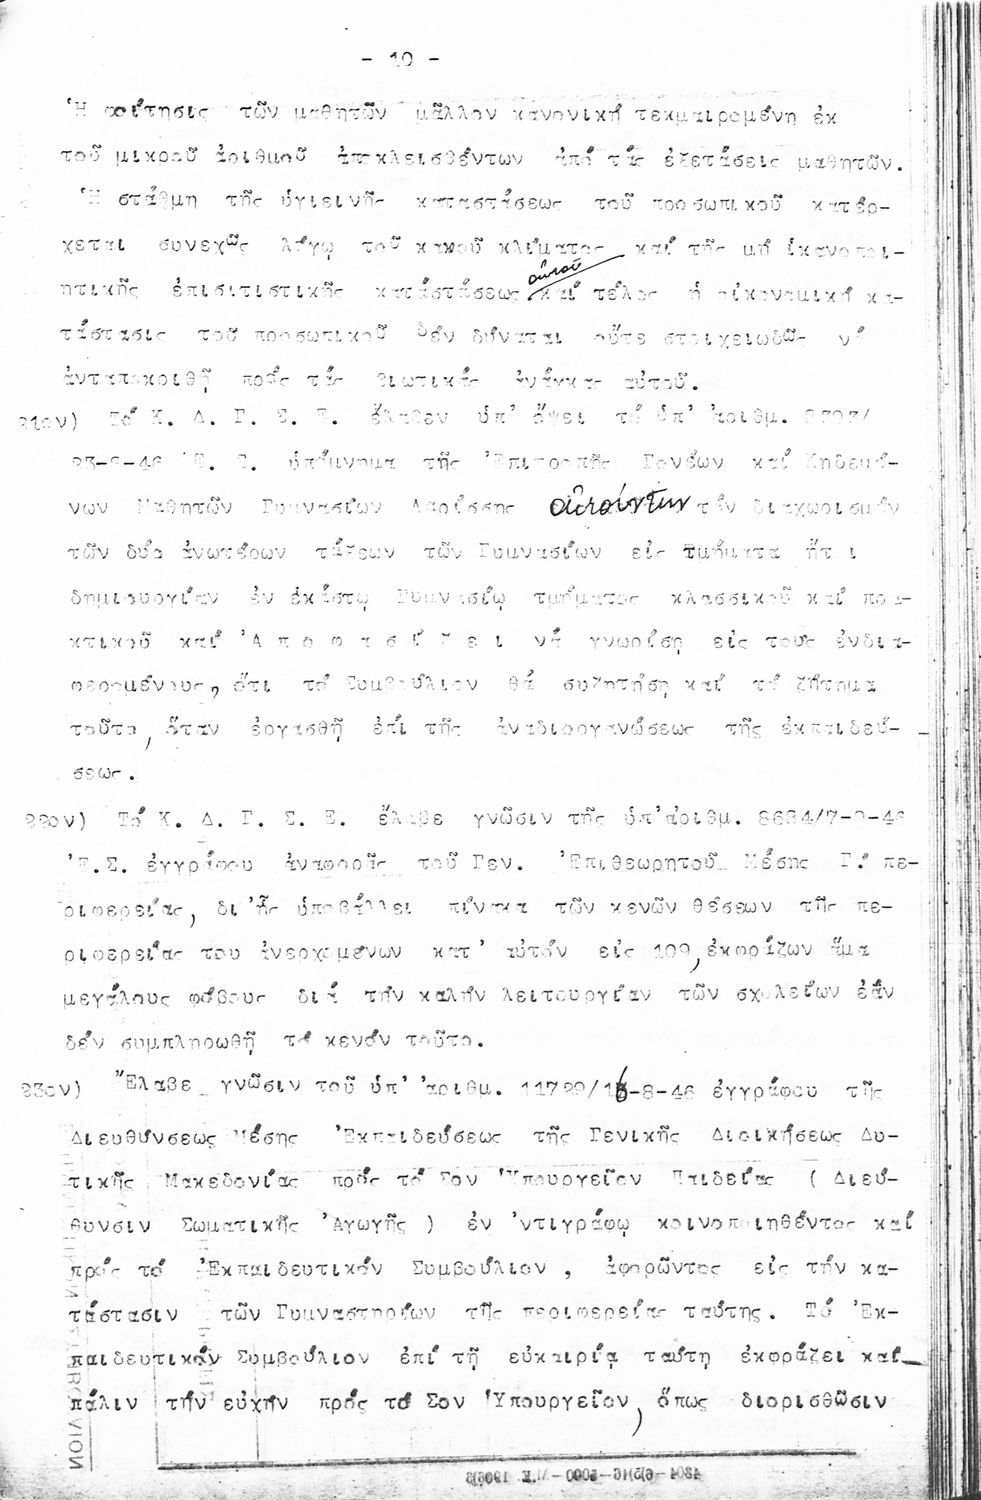 - 10 -
Ἡ φοίτησις τῶν μαθητῶν μᾶλλον κανονική τεκμαιρομένη ἐκ
τοῦ μικροῦ ἀριθμοῦ ἀποκλεισθέντων ἀπό τάς ἐξετάσεις μαθητῶν.
Ἡ στάθμη τῆς ὑγιεινῆς καταστάσεως τοῦ προσωπικοῦ κατέρ-
χεται συνεχῶς λόγῳ τοῦ κακοῦ κλίματος καί τῆς μή ἱκανοποι-
αὐτοῦ
ητικῆς ἐπισιτιστικῆς κατάστάσεως καί τέλος ἡ οἰκονομική κα-
τάστασις τοῦ προσωπικοῦ δέν δύναται οὔτε στοιχειωδῶς νά
ἀνταποκριθῇ πρός τάς βιωτικάς ἀνάγκας αὐτοῦ.
21ον) Τό Κ. Δ. Γ. Σ. Ε. ἔλαβεν ὑπ' ὄψει τό ὑπ' ἀριθμ.
23-8-46 Ἐ. Σ. ὑπόμνημα τῆς Ἐπιτροπῆς Γονέων καί Κηδεμό-
νων Μαθητῶν Γυμνασίων Λαρίσσης αἰτούντων τήν διαχωρισμόν
τῶν δύο ἀνωτέρων τάξεων τῶν Γυμνασίων εἰς τμήματα ἤτοι
δημιουργίαν ἐν ἑκάστῳ Γυμνασίῳ τμήματος κλασσικοῦ καί πρα-
κτικοῦ καί Ἀ π ο φ α σ ί ζ ε ι νά γνωρίσῃ εἰς τούς ἐνδια-
φερομένους, ὅτι τό Συμβούλιον θά συζητήσῃ καί τό ζήτημα
τοῦτο, ὅταν ἐργασθῇ ἐπί τῆς ἀναδιοργανώσεως τῆς ἐκπαιδεύ-
σεως.
22ον) Τό Κ. Δ. Γ. Σ. Ε. ἔλαβε γνῶσιν τῆς ὑπ'ἀριθμ. 8634/7-8-46
Ἐ.Σ. ἐγγράφου ἀναφορᾶς τοῦ Γεν. Ἐπιθεωρητοῦ Μέσης Γ.' πε-
ριφερείας, δι'ἧς ὑποβάλλει πίνακα τῶν κενῶν θέσεων τῆς πε-
ριφερείας του ἀνερχομένων κατ' αὐτόν εἰς 109, ἐκφράζων ἅμα
μεγάλους φόβους διά τήν καλήν λειτουργίαν τῶν σχολείων ἐάν
δέν συμπληρωθῇ τό κενόν τοῦτο.
23ον) Ἔλαβε γνῶσιν τοῦ ὑπ' ἀριθμ. 11729/16-8-46 ἐγγράφου τῆς
Διευθύνσεως Μέσης Ἐκπαιδεύσεως τῆς Γενικῆς Διοικήσεως Δυ-
τικῆς Μακεδονίας πρός τό Σον Ὑπουργεῖον Παιδείας ( Διεύ-
θυνσιν Σωματικῆς Ἀγωγῆς ) ἐν ἀντιγράφῳ κοινοποιηθέντος καί
πρός τό Ἐκπαιδευτικόν Συμβούλιον , ἀφορῶντος εἰς τήν κα-
τάστασιν τῶν Γυμναστηρίων τῆς περιφερείας ταύτης. Τό Ἐκ-
παιδευτικόν Συμβούλιον ἐπί τῇ εὐκαιρίᾳ ταύτῃ ἐκφράζει καί
πάλιν τήν εὐχήν πρός τό Σον Ὑπουργεῖον, ὅπως διορισθῶσιν